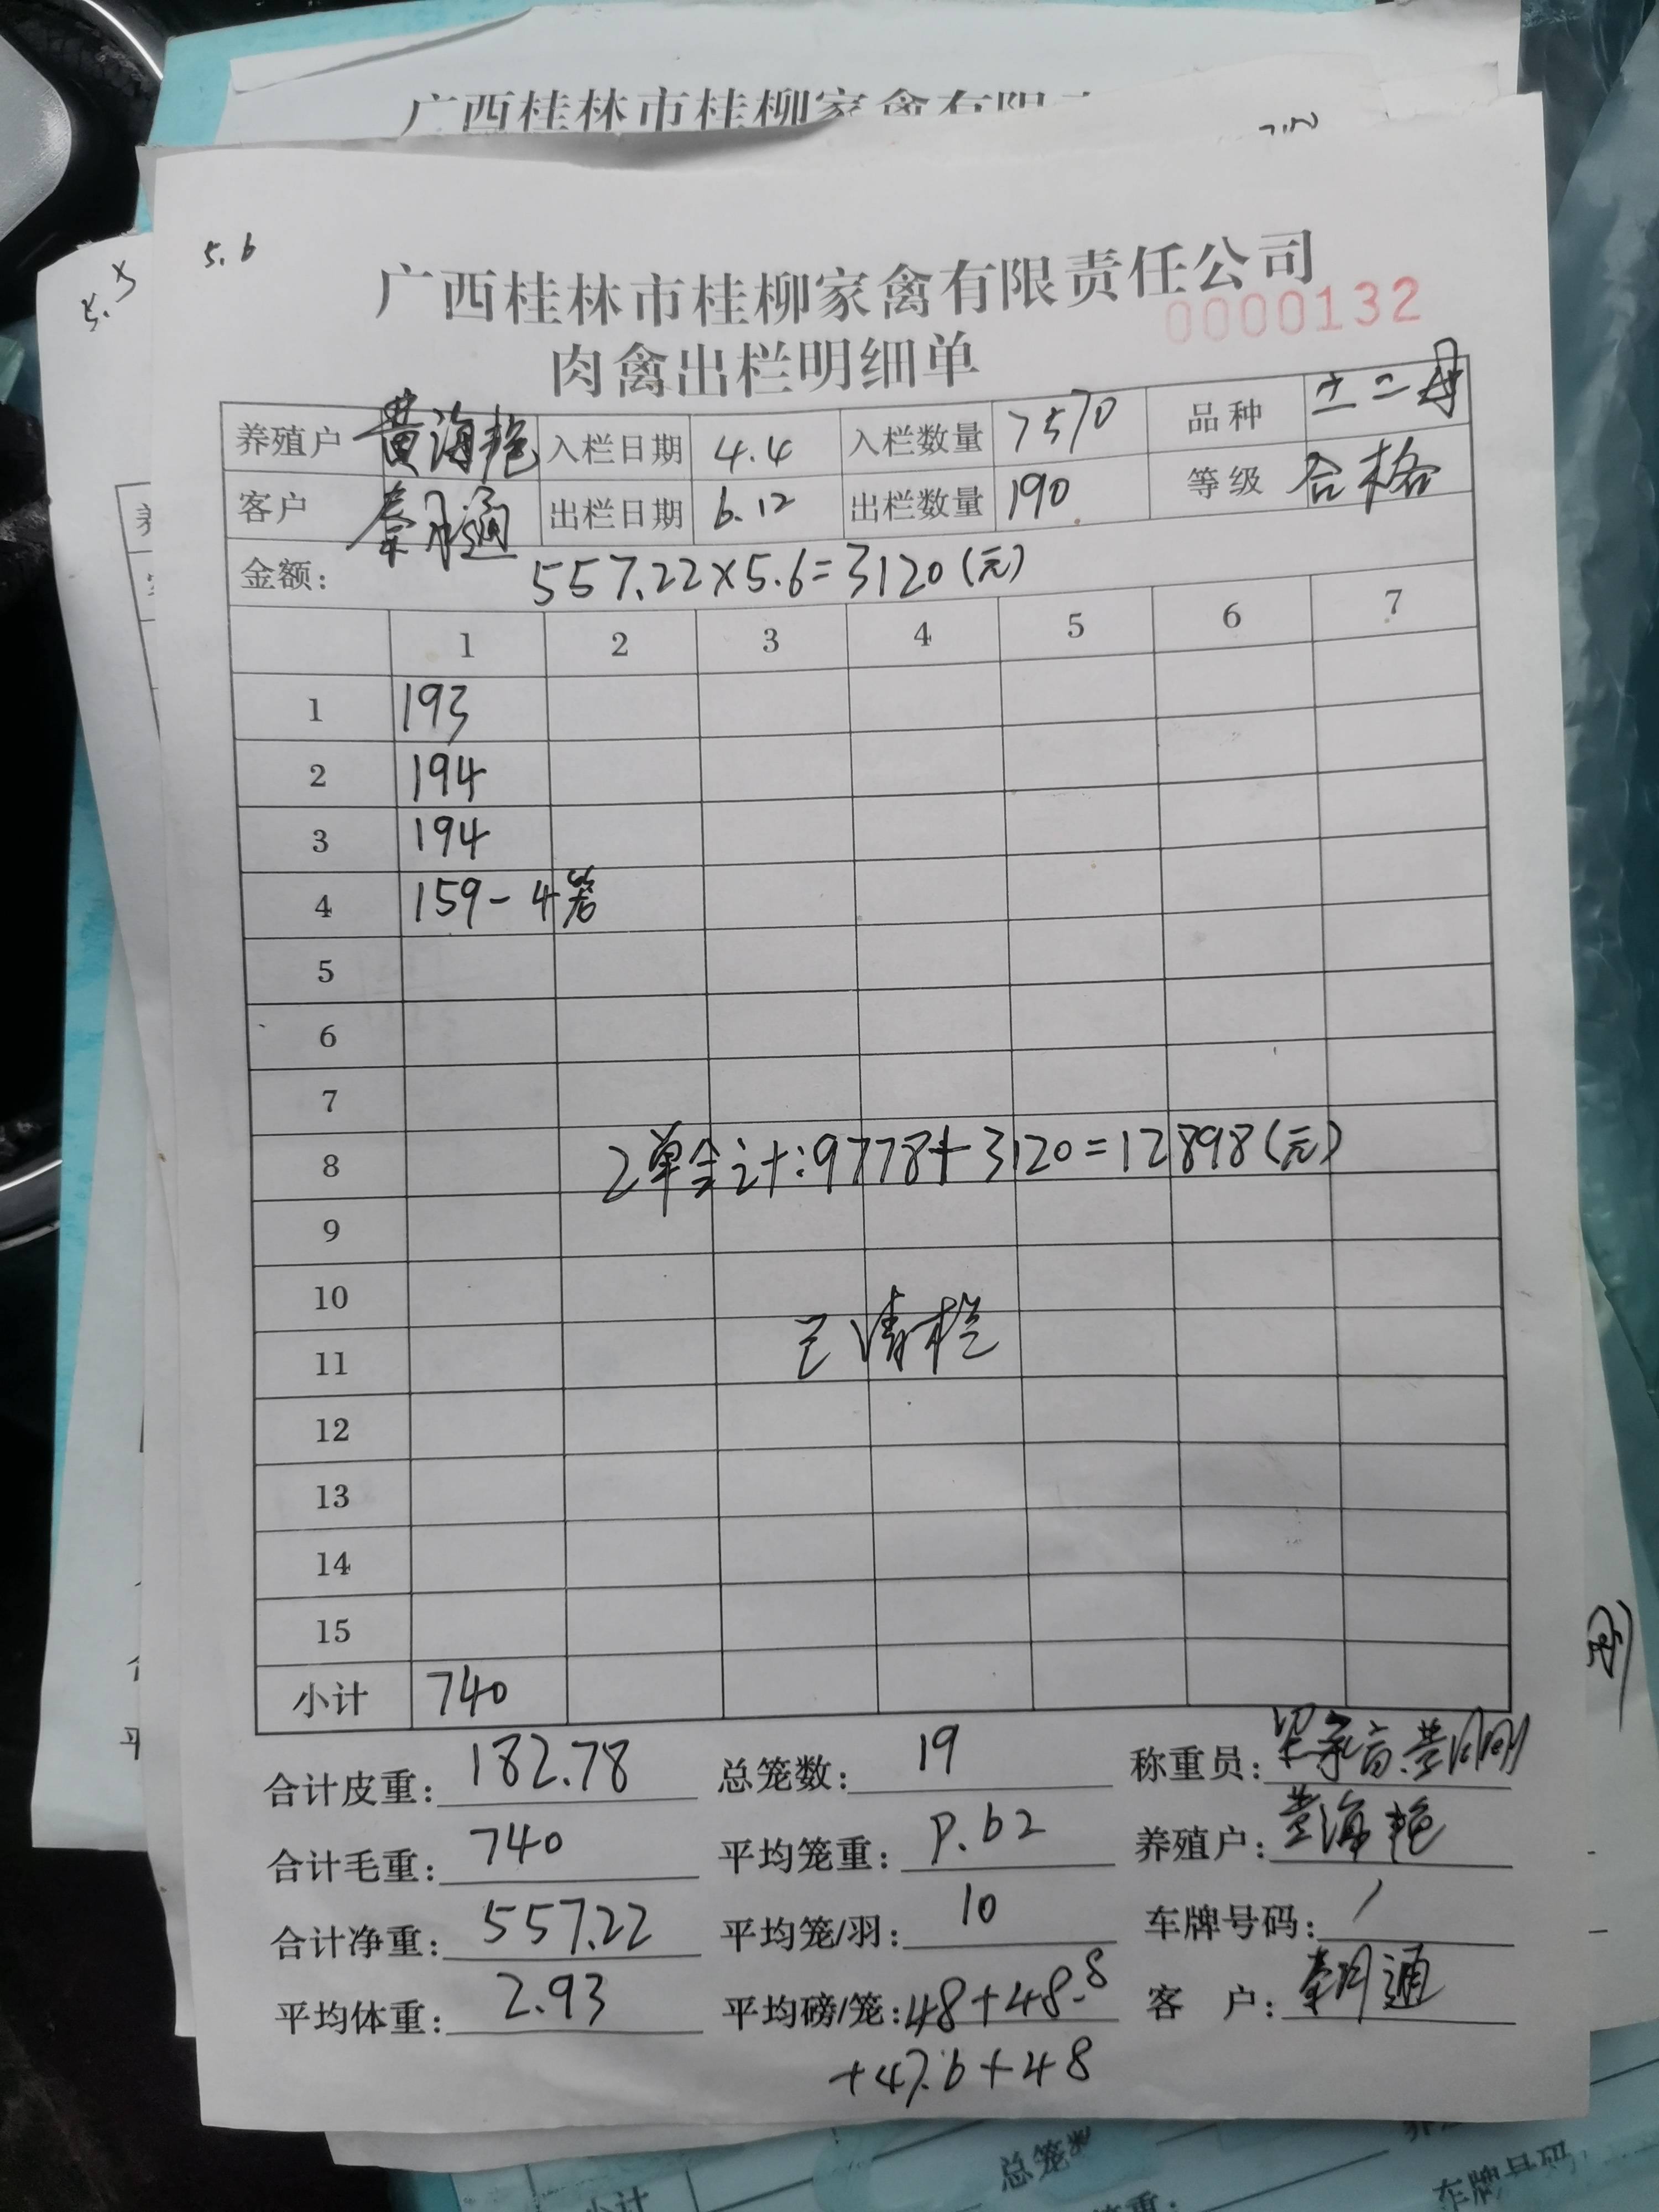 广西桂林市桂柳家禽有限
5.6
5.3
广西桂林市桂柳家禽有限责任公司
0000132
肉禽出栏明细单
养殖户 黄海艳 入栏日期 4.4 入栏数量 7570 品种 土二母
客户 秦月通 出栏日期 6.12 出栏数量 190 等级 合格
金额: 557.22×5.6=3120(元)
1 2 3 4 5 6 7
1 193
2 194
3 194
4 159-4笼
5
6
7
8 2单合计:9778+3120=12898(元)
9
10
11 已清栏
12
13
14
15
小计 740
合计皮重: 182.78 总笼数: 19 称重员:
合计毛重: 740 平均笼重: 9.62 养殖户: 黄海艳
合计净重: 557.22 平均笼/羽: 10 车牌号码: /
平均体重: 2.93 平均磅/笼: 48+48.8 客户: 秦月通
+47.6+48
总笼数
小计
车牌号码